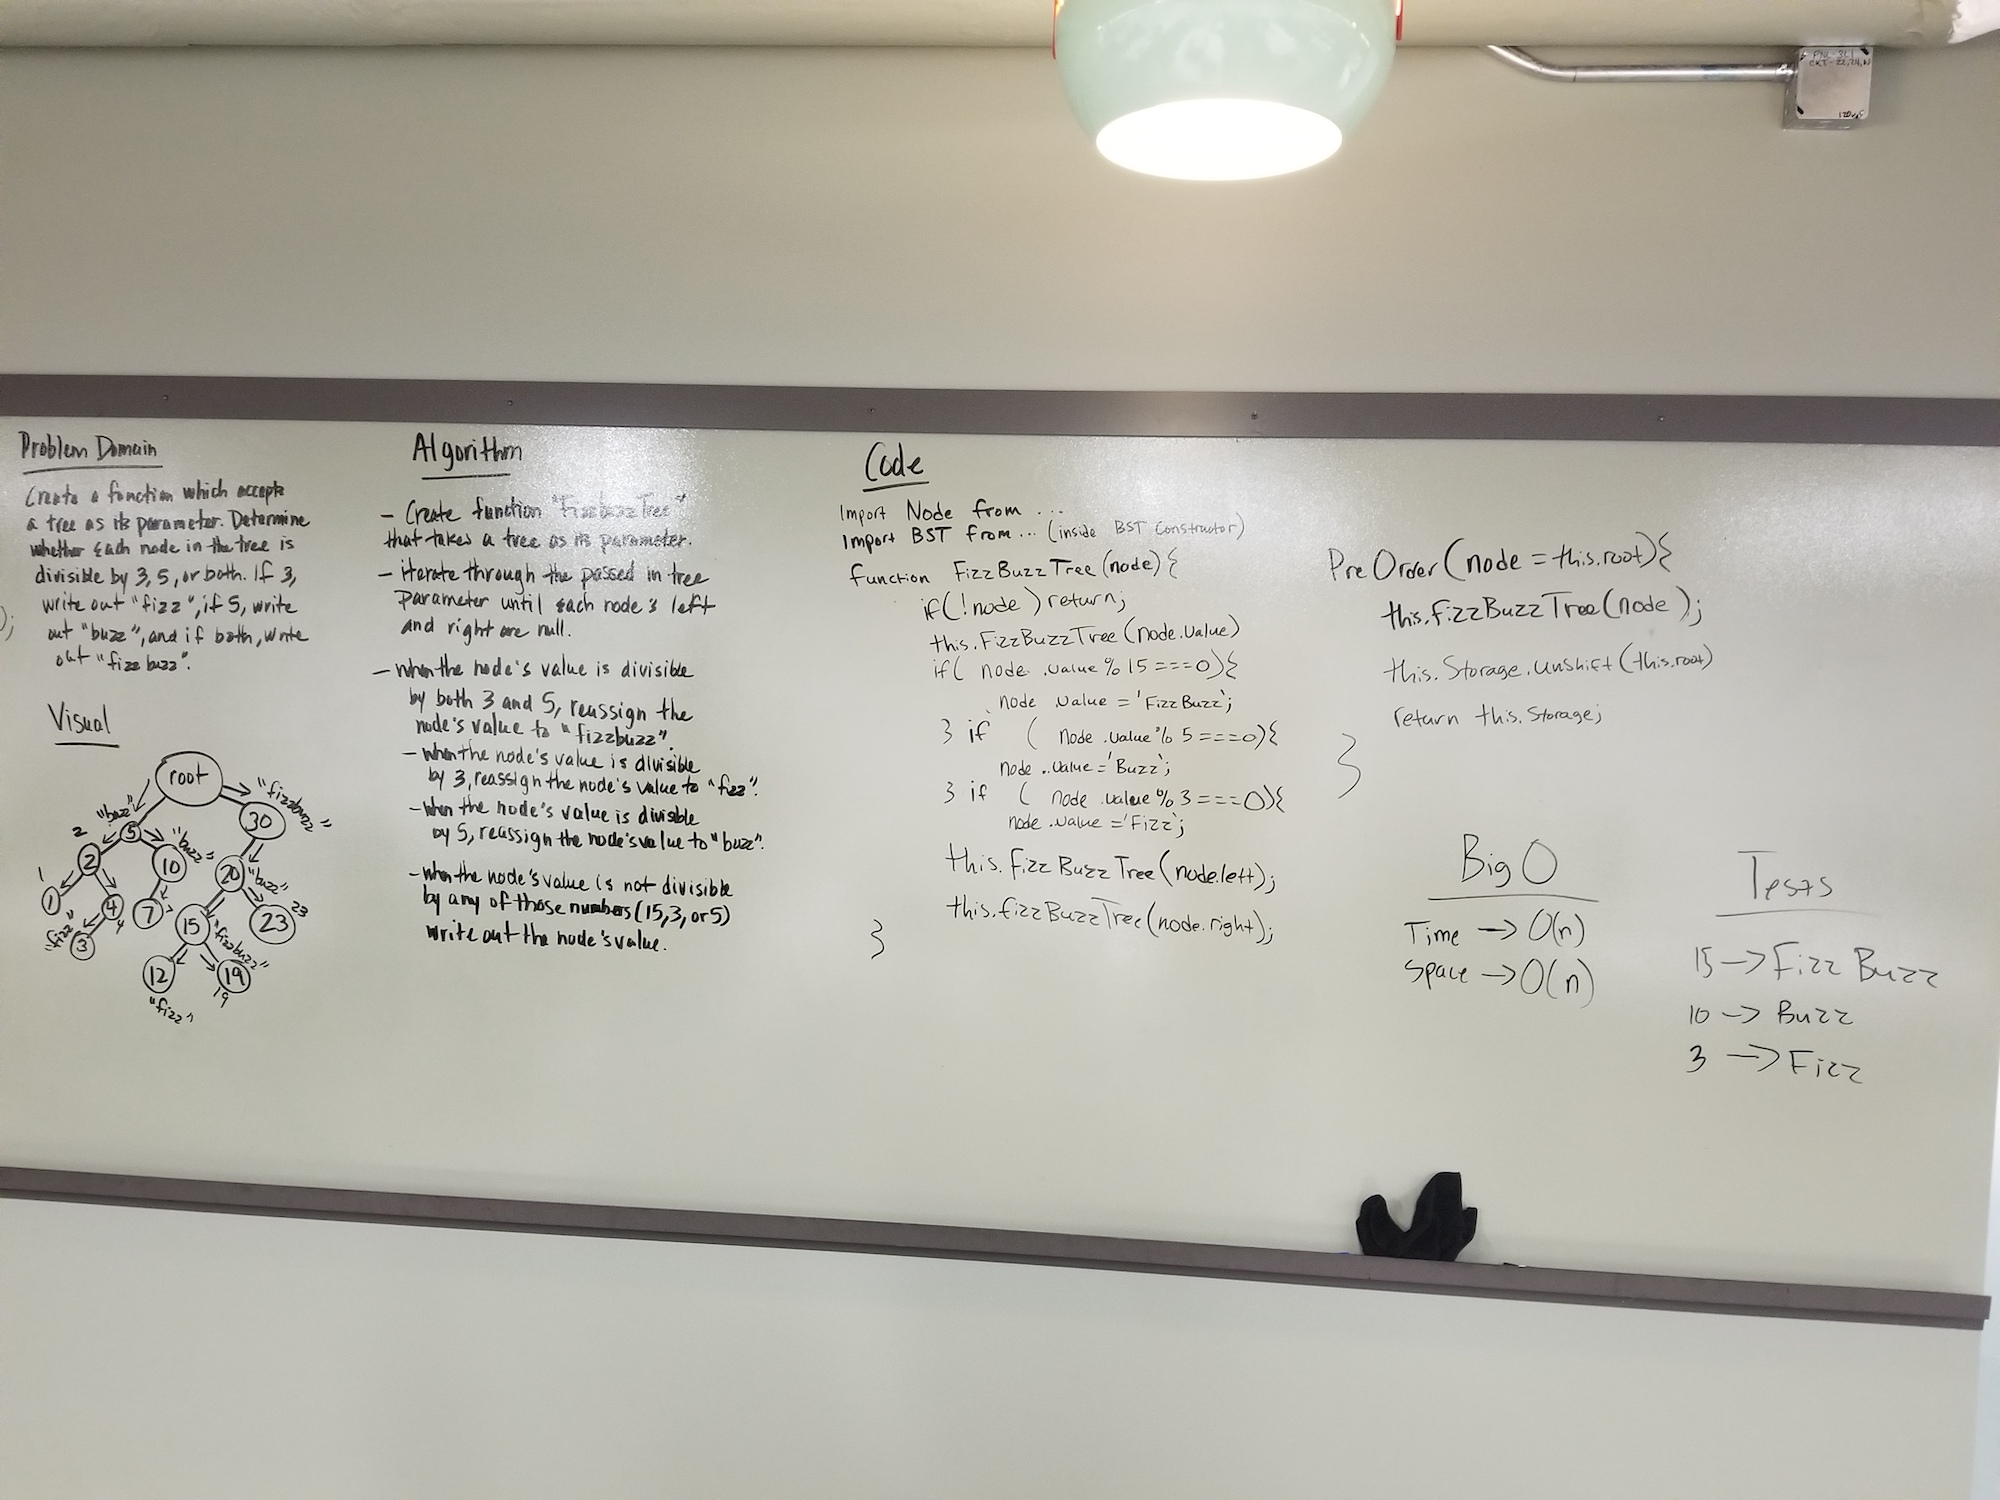 PNL-3L1
CKT-22,24,26
120V
Problem Domain
Create a function which accepts
a tree as its parameter. Determine
whether each node in the tree is
divisible by 3, 5, or both. If 3,
write out "fizz", if 5, write
out "buzz", and if both, write
out "fizzbuzz".
);
Visual
root
"buzz"
"fizzbuzz"
2
5
"buzz"
30
1
2
10
20
"buzz"
1
4
4
7
7
15
23
23
"fizz"
3
"fizzbuzz"
12
19
"fizz"
19
Algorithm
- Create function "FizzbuzzTree"
that takes a tree as its parameter.
- iterate through the passed in tree
parameter until each node's left
and right are null.
- when the node's value is divisible
by both 3 and 5, reassign the
node's value to "fizzbuzz".
- when the node's value is divisible
by 3, reassign the node's value to "fizz".
- when the node's value is divisible
by 5, reassign the node's value to "buzz".
- when the node's value is not divisible
by any of those numbers (15, 3, or 5)
write out the node's value.
Code
Import Node from ...
Import BST from ... (inside BST Constructor)
function FizzBuzzTree(node){
if(!node) return;
this.FizzBuzzTree(node.value)
if( node .value % 15 ===0){
node .value = 'FizzBuzz';
} if ( node .value % 5 ===0){
node .value = 'Buzz';
} if ( node .value % 3 ===0){
node .value = 'Fizz';
this.fizzBuzzTree(node.left);
this.fizzBuzzTree(node.right);
}
PreOrder(node = this.root){
this.fizzBuzzTree(node);
this.Storage.unshift(this.root)
return this.Storage;
}
Big O
Time -> O(n)
Space -> O(n)
Tests
15 -> FizzBuzz
10 -> Buzz
3 -> Fizz